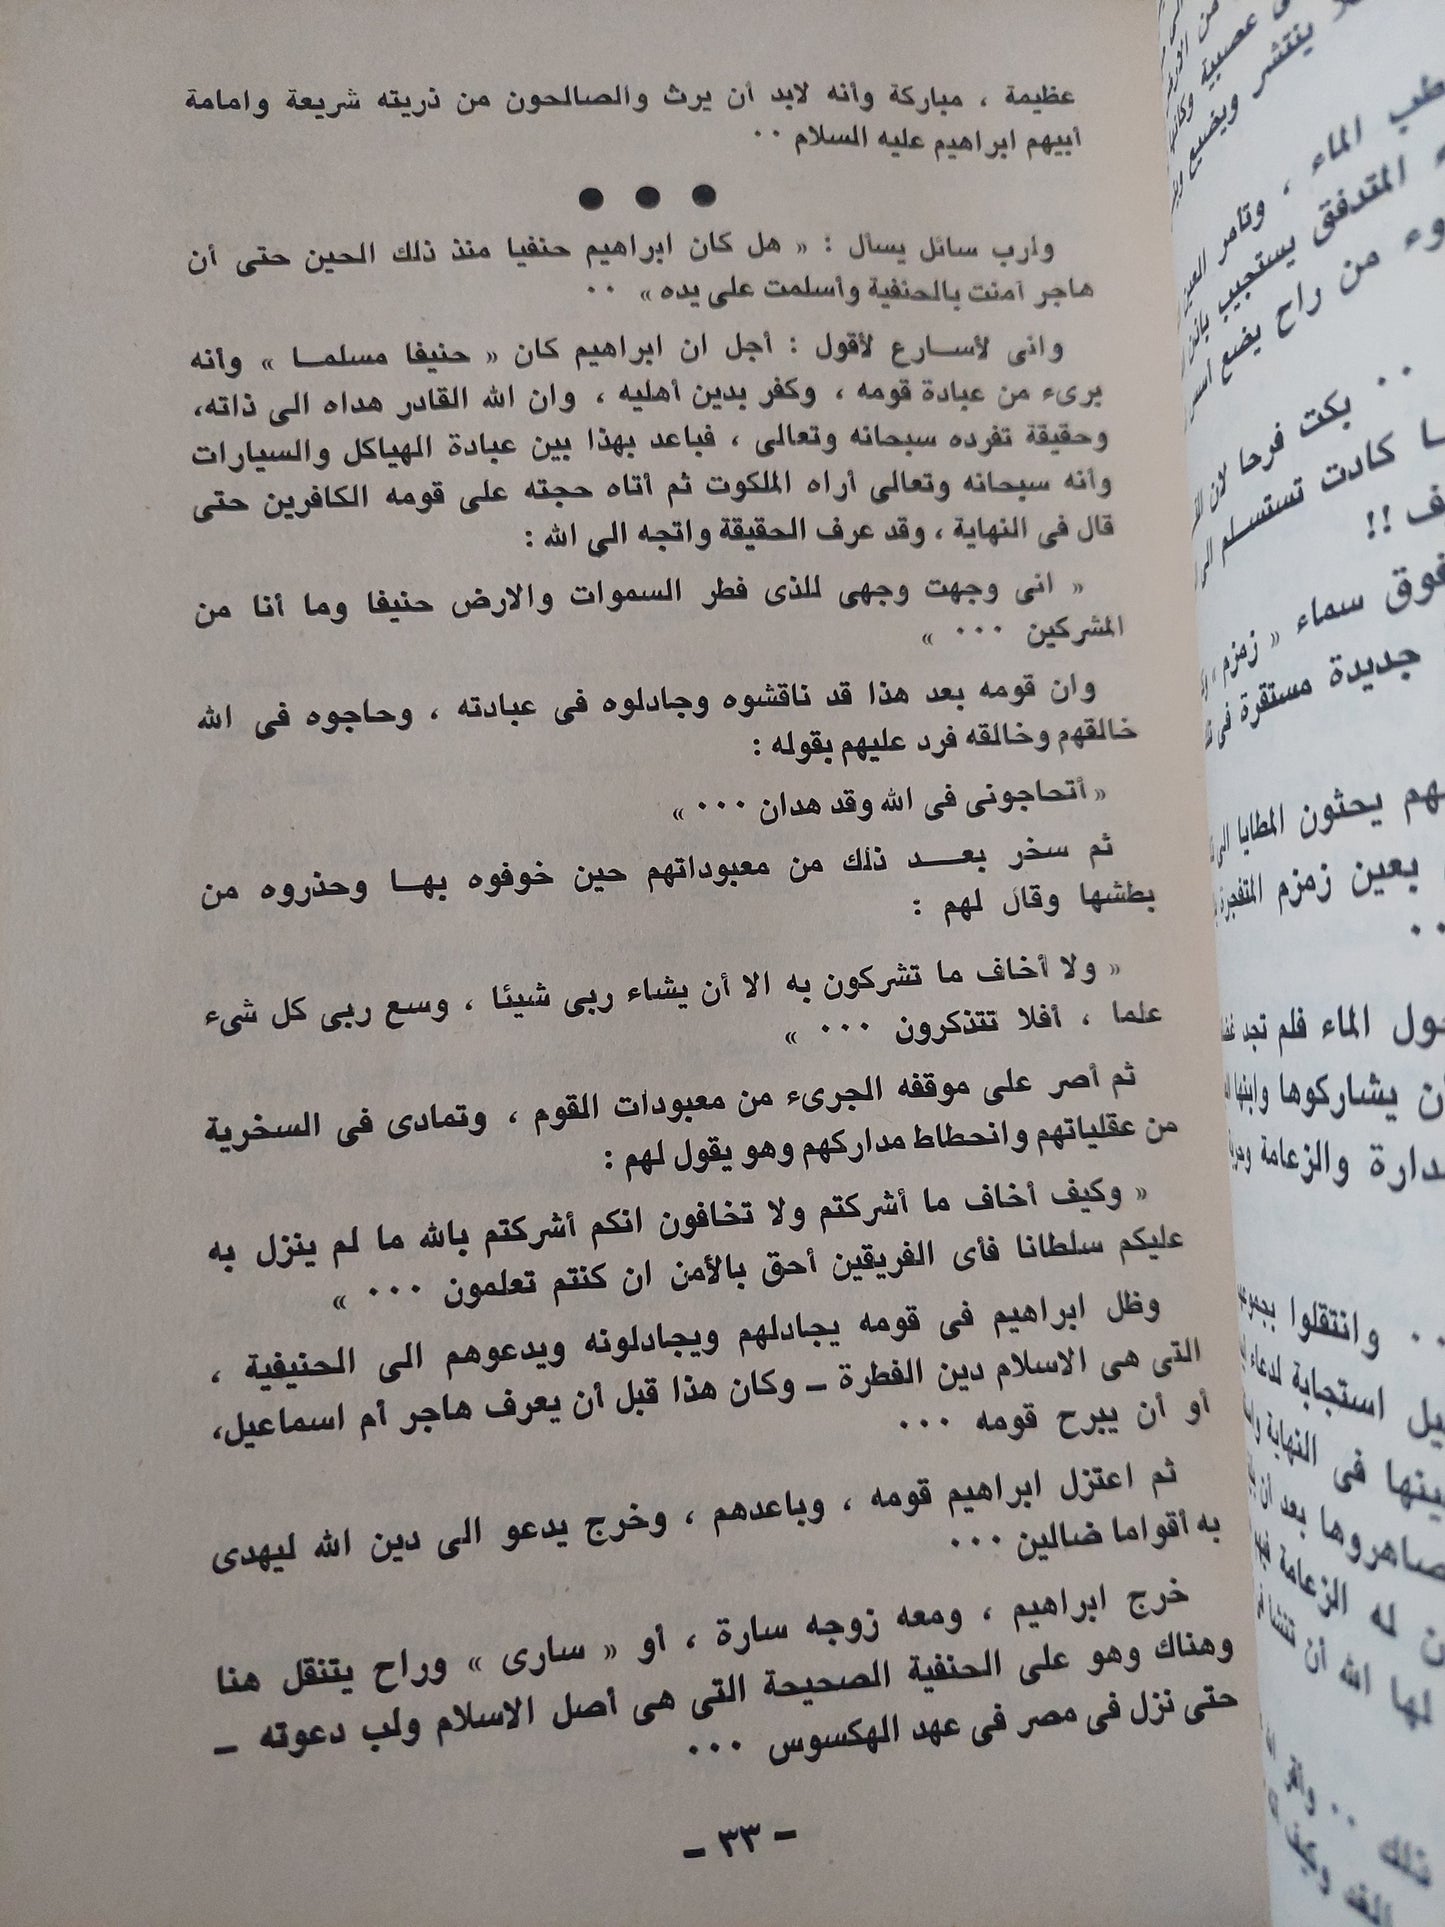 عظيمة ، مباركة وأنه لابد أن يرث والصالحون من ذريته شريعة وامامة
أبيهم ابراهيم عليه السلام ٠٠
● ● ●
ولرب سائل يسأل : « هل كان ابراهيم حنفيا منذ ذلك الحين حتى أن
هاجر آمنت بالحنفية وأسلمت على يده» ٠٠
وانى لأسارع لأقول : أجل ان ابراهيم كان « حنيفا مسلما » وأنه
برىء من عبادة قومه ، وكفر بدين أهليه ، وان الله القادر هداه الى ذاته،
وحقيقة تفرده سبحانه وتعالى ، فباعد بهذا بين عبادة الهياكل والسيارات
وأنه سبحانه وتعالى أراه الملكوت ثم أتاه حجته على قومه الكافرين حتى
قال فى النهاية ، وقد عرف الحقيقة واتجه الى الله :
« انى وجهت وجهى للذى فطر السموات والارض حنيفا وما أنا من
المشركين ٠٠٠ »
وان قومه بعد هذا قد ناقشوه وجادلوه فى عبادته ، وحاجوه فى الله
خالقهم وخالقه فرد عليهم بقوله :
« أتحاجونى فى الله وقد هدان ٠٠٠ »
ثم سخر بعد ذلك من معبوداتهم حين خوفوه بها وحذروه من
بطشها وقال لهم :
« ولا أخاف ما تشركون به الا أن يشاء ربى شيئا ، وسع ربى كل شىء
علما ، أفلا تتذكرون ٠٠٠ »
ثم أصر على موقفه الجرىء من معبودات القوم ، وتمادى فى السخرية
من عقلياتهم وانحطاط مداركهم وهو يقول لهم :
« وكيف أخاف ما أشركتم ولا تخافون انكم أشركتم بالله ما لم ينزل به
عليكم سلطانا فأى الفريقين أحق بالأمن ان كنتم تعلمون ٠٠٠ »
وظل ابراهيم فى قومه يجادلهم ويجادلونه ويدعوهم الى الحنيفية ،
التى هى الاسلام دين الفطرة ـ وكان هذا قبل أن يعرف هاجر أم اسماعيل،
أو أن يبرح قومه ٠٠٠
ثم اعتزل ابراهيم قومه ، وباعدهم ، وخرج يدعو الى دين الله ليهدى
به أقواما ضالين ٠٠٠
خرج ابراهيم ، ومعه زوجه سارة ، أو « سارى » وراح يتنقل هنا
وهناك وهو على الحنفية الصحيحة التى هى أصل الاسلام ولب دعوته ـ
حتى نزل فى مصر فى عهد الهكسوس ٠٠٠
ـ ٣٣ ـ
ينتشر ويضيع
الماء ، وتأمر العين
المتدفق يستجيب
من راح يضع
٠٠ بكت فرحا لان
كادت تستسلم
!!
فوق سماء « زمزم »
جديدة مستقرة فى
يحثون المطايا
بعين زمزم المتفجرة
٠٠
الماء فلم تجد
يشاركوها وابنها
والزعامة
٠٠ وانتقلوا
استجابة لدعاء
فى النهاية
بعد أن
له الزعامة
لها الله أن
ذلك ٠٠